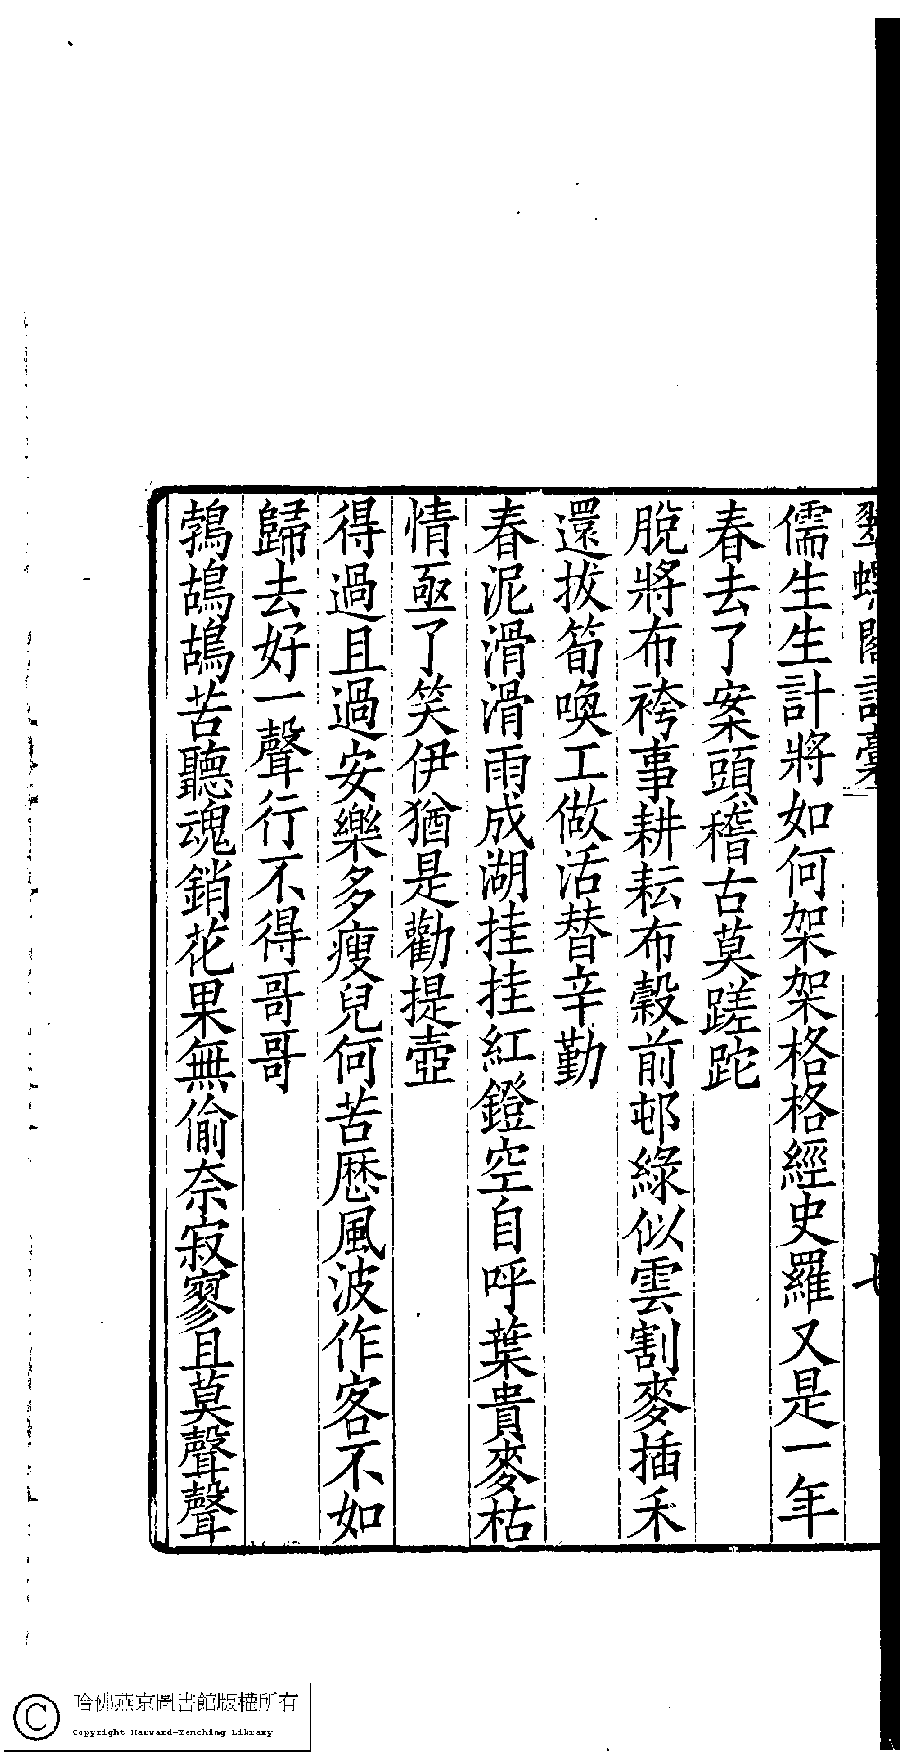 翠螺閣詩稾
七
儒生生計將如何架架格格經史羅又是一年
春去了案頭稽古莫蹉跎
脫將布袴事耕耘布穀前邨綠似雲割麥插禾
還拔筍喚工做活替辛勤
春泥滑滑雨成湖挂挂紅鐙空自呼葉貴麥枯
情亟了笑伊猶是勸提壺
得過且過安樂多瘦兒何苦歷風波作客不如
歸去好一聲行不得哥哥
鵓鴣鴣苦聽魂銷花果無偷奈寂寥且莫聲聲
哈佛燕京圖書館版權所有
Copyright Harvard-Yenching Library